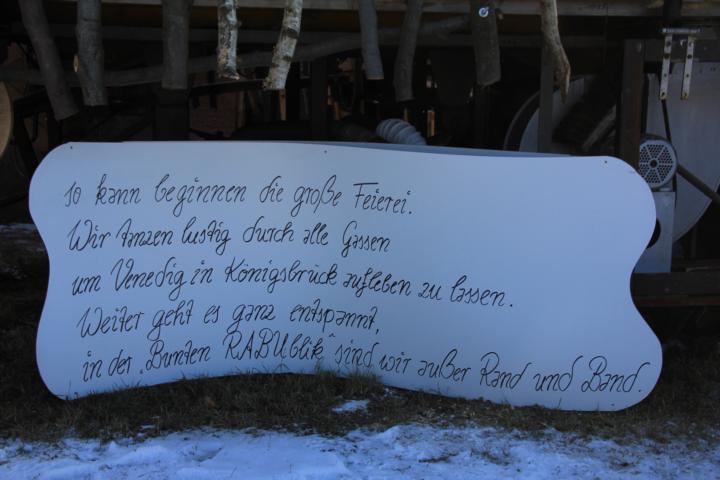 so kann beginnen die große Feierei.
Wir tanzen lustig durch alle Gassen
um Venedig in Königsbrück aufleben zu lassen.
Weiter geht es ganz entspannt,
in der „Bunten RABUblik“ sind wir außer Rand und Band.